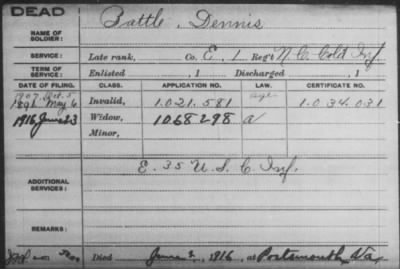 DEAD
NAME OF SOLDIER: Battle, Dennis
SERVICE: Late rank, Co. E, 1 Reg't N. C. Cold Inf.
TERM OF SERVICE: Enlisted , 1 Discharged , 1
DATE OF FILING. CLASS. APPLICATION NO. LAW. CERTIFICATE NO.
1907 Oct. 5 age
1891 May 6 Invalid, 1.021.581 1.034.031
1916 June 23 Widow, 1068298 a
Minor,
E. 35 U. S. C. Inf.
ADDITIONAL SERVICES:
REMARKS:
Died June 3, 1916, at Portsmouth, Va.